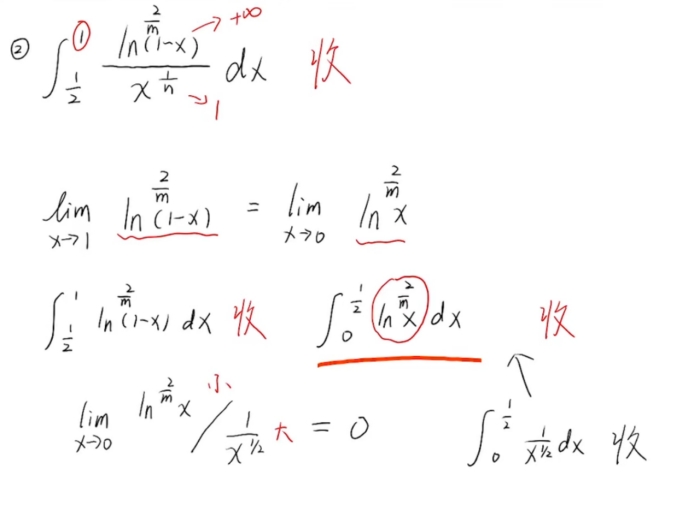 ② ∫_{1/2}^{1} \frac{ln^{2/m}(1-x)}{x^{1/n}} dx 收
→ +∞
→ 1
lim_{x→1} ln^{2/m}(1-x) = lim_{x→0} ln^{2/m} x
∫_{1/2}^{1} ln^{2/m}(1-x) dx 收 ∫_{0}^{1/2} ln^{2/m} x dx 收
lim_{x→0} ln^{2/m} x 小 / \frac{1}{x^{1/2}} 大 = 0 ∫_{0}^{1/2} \frac{1}{x^{1/2}} dx 收